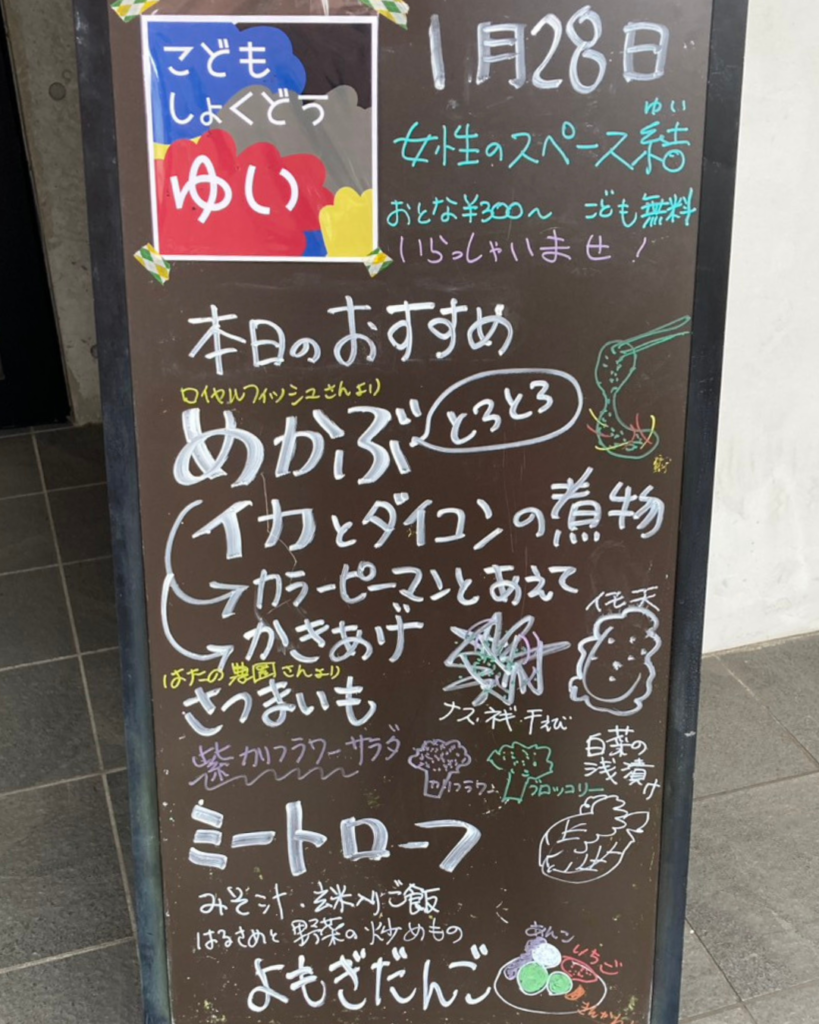 こども
しょくどう
ゆい
1月28日
ゆい
女性のスペース結
おとな¥300〜 こども無料
いらっしゃいませ!
本日のおすすめ
ロイヤルフィッシュさんより
めかぶ
とろとろ
イカとダイコンの煮物
カラーピーマンとあえて
かきあげ
イモ天
はたの農園さんより
さつまいも
ナス・ネギ・干えび
紫カリフラワーサラダ
カリフラワー
ブロッコリー
白菜の
浅漬け
ミートローフ
みそ汁・玄米入りご飯
はるさめと野菜の炒めもの
よもぎだんご
あんこ
いちご